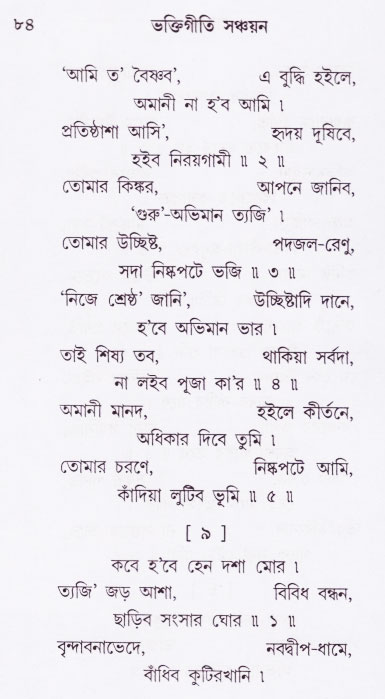 ৮৪ ভক্তিগীতি সঞ্চয়ন
‘আমি ত’ বৈষ্ণব’, এ বুদ্ধি হইলে,
অমানী না হ’ব আমি ।
প্রতিষ্ঠাশা আসি’, হৃদয় দূষিবে,
হইব নিরয়গামী ॥ ২ ॥
তোমার কিঙ্কর, আপনে জানিব,
‘গুরু’-অভিমান ত্যজি’ ।
তোমার উচ্ছিষ্ট, পদজল-রেণু,
সদা নিষ্কপটে ভজি ॥ ৩ ॥
‘নিজে শ্রেষ্ঠ’ জানি’, উচ্ছিষ্টাদি দানে,
হ’বে অভিমান ভার ।
তাই শিষ্য তব, থাকিয়া সর্বদা,
না লইব পূজা কা’র ॥ ৪ ॥
অমানী মানদ, হইলে কীর্তনে,
অধিকার দিবে তুমি ।
তোমার চরণে, নিষ্কপটে আমি,
কাঁদিয়া লুটিব ভূমি ॥ ৫ ॥
[ ৯ ]
কবে হ’বে হেন দশা মোর ।
ত্যজি’ জড় আশা, বিবিধ বন্ধন,
ছাড়িব সংসার ঘোর ॥ ১ ॥
বৃন্দাবনাভেদে, নবদ্বীপ-ধামে,
বাঁধিব কুটিরখানি ।